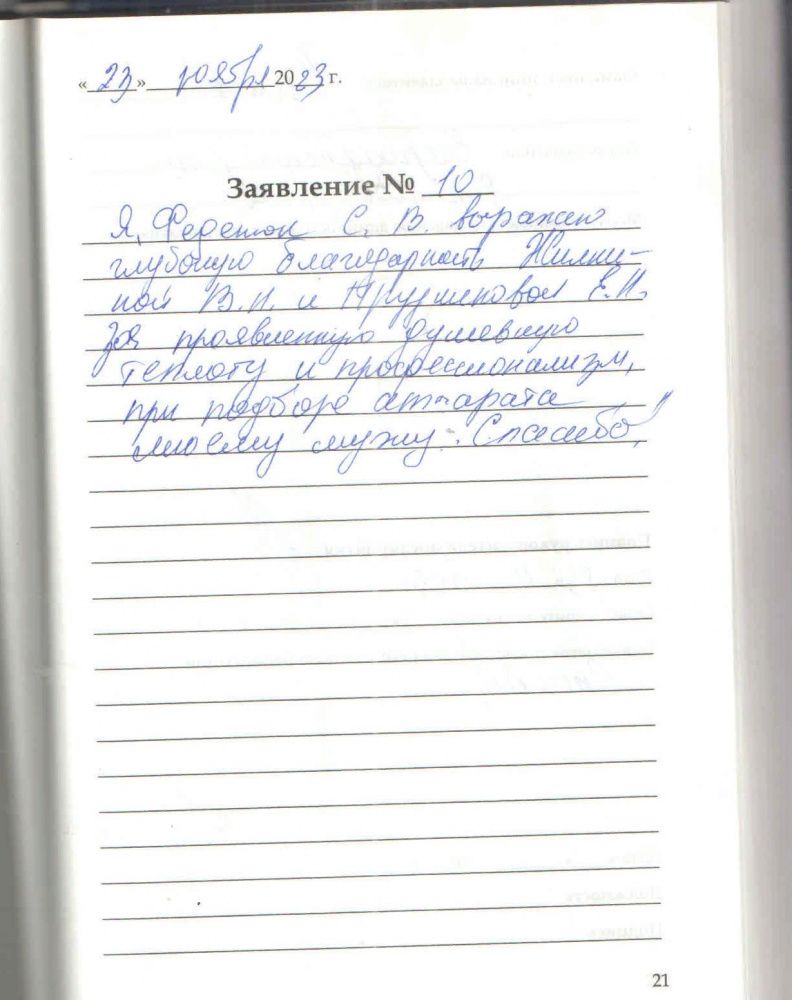 « 23 » ноября 2023 г.
Заявление № 10
Я, Феденюк С. В. выражаю
глубокую благодарность Жилки-
ной В.И. и Е.И.
за проявленную душевную
теплоту и профессионализм,
при подборе аппарата
моему мужу. Спасибо!
21